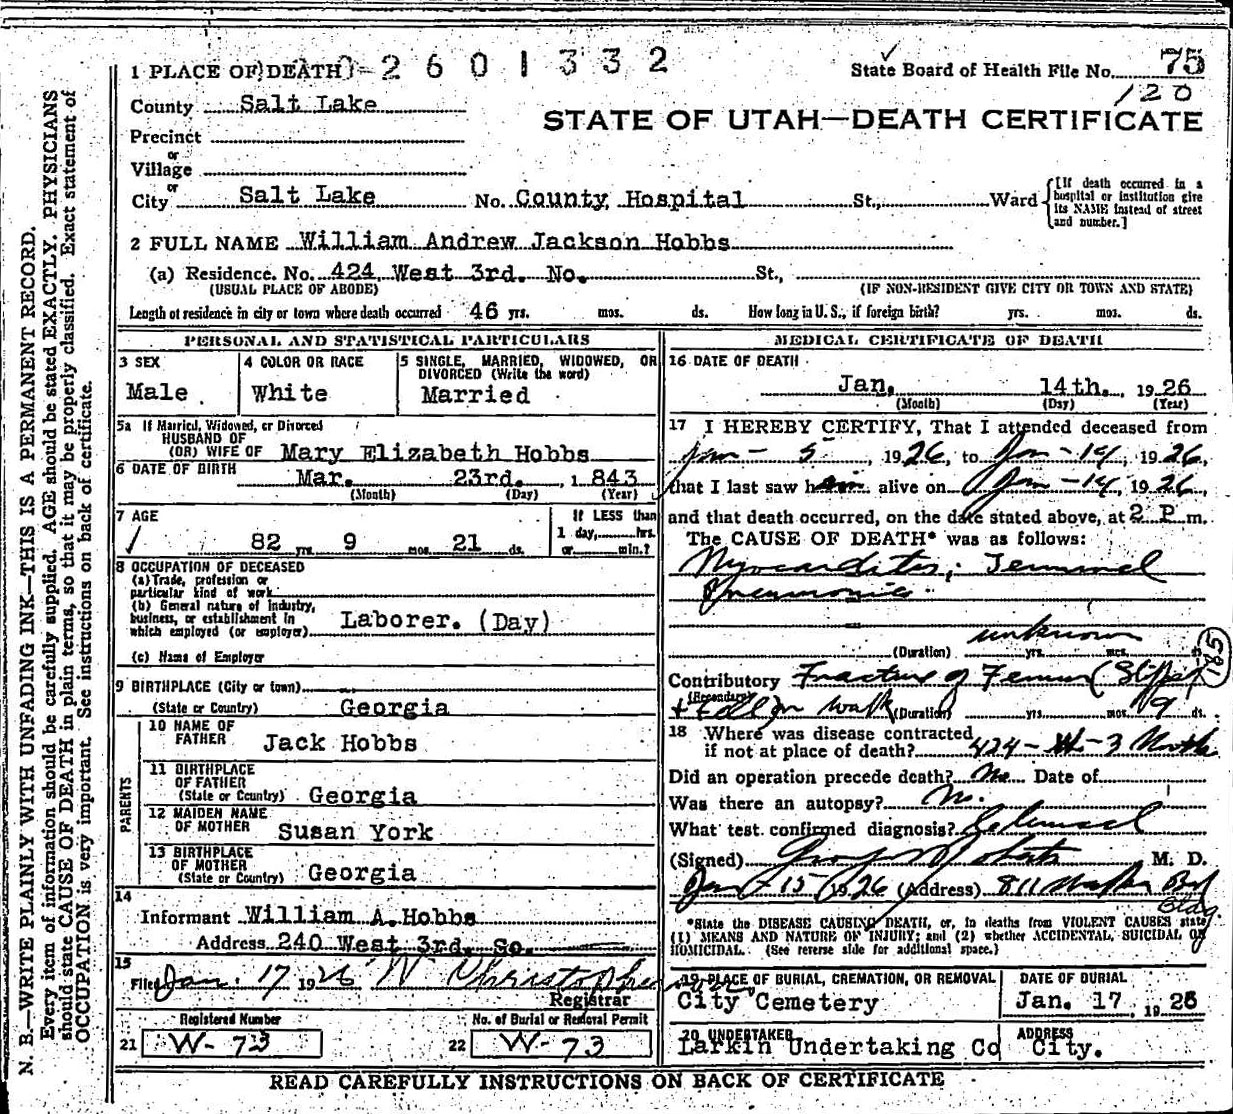 N. B.—WRITE PLAINLY WITH UNFADING INK—THIS IS A PERMANENT RECORD.
Every item of information should be carefully supplied. AGE should be stated EXACTLY. PHYSICIANS
should state CAUSE OF DEATH in plain terms, so that it may be properly classified. Exact statement of
OCCUPATION is very important. See instructions on back of certificate.
1 PLACE OF DEATH 2601332
State Board of Health File No. 75
120
County Salt Lake
STATE OF UTAH—DEATH CERTIFICATE
Precinct
or
Village
or
City Salt Lake No. County Hospital St., Ward
[If death occurred in a
hospital or institution give
its NAME instead of street
and number.]
2 FULL NAME William Andrew Jackson Hobbs
(a) Residence. No. 424 West 3rd. No. St.,
(USUAL PLACE OF ABODE) (IF NON-RESIDENT GIVE CITY OR TOWN AND STATE)
Length of residence in city or town where death occurred 46 yrs. mos. ds. How long in U. S., if foreign birth? yrs. mos. ds.
PERSONAL AND STATISTICAL PARTICULARS
3 SEX
Male
4 COLOR OR RACE
White
5 SINGLE, MARRIED, WIDOWED, OR
DIVORCED (Write the word)
Married
5a If Married, Widowed, or Divorced
HUSBAND OF
(OR) WIFE OF Mary Elizabeth Hobbs
6 DATE OF BIRTH
Mar. 23rd. , 1 843
(Month) (Day) (Year)
7 AGE
82 yrs. 9 mos. 21 ds.
If LESS than
1 day, hrs.
or min.?
8 OCCUPATION OF DECEASED
(a) Trade, profession or
particular kind of work
(b) General nature of Industry,
business, or establishment in
which employed (or employer) Laborer. (Day)
(c) Name of Employer
9 BIRTHPLACE (City or town)
(State or Country) Georgia
PARENTS
10 NAME OF
FATHER Jack Hobbs
11 BIRTHPLACE
OF FATHER
(State or Country) Georgia
12 MAIDEN NAME
OF MOTHER Susan York
13 BIRTHPLACE
OF MOTHER
(State or Country) Georgia
14
Informant William A. Hobbs
Address 240 West 3rd. So.
15
Filed Jan. 17 1926 W Christopherson
Registrar
Registered Number
21 W-73
No. of Burial or Removal Permit
22 W-73
MEDICAL CERTIFICATE OF DEATH
16 DATE OF DEATH
Jan. 14th. , 1926
(Month) (Day) (Year)
17 I HEREBY CERTIFY, That I attended deceased from
Jan - 5 1926, to Jan - 14, 1926,
that I last saw him alive on Jan - 14, 1926,
and that death occurred, on the date stated above, at 2 P. m.
The CAUSE OF DEATH* was as follows:
Myocarditis; Terminal
Pneumonia
unknown
(Duration) yrs. mos. ds.
185
Contributory Fracture of Femur (Slipped
(Secondary)
+ Fell on walk (Duration) yrs. mos. 9 ds.
18 Where was disease contracted
if not at place of death? 424 - W - 3 North
Did an operation precede death? No Date of
Was there an autopsy? No.
What test confirmed diagnosis?
(Signed) M. D.
Jan - 15, 1926 (Address) 811 Walker
Bldg.
*State the DISEASE CAUSING DEATH, or, in deaths from VIOLENT CAUSES state
(1) MEANS AND NATURE OF INJURY; and (2) whether ACCIDENTAL, SUICIDAL OR
HOMICIDAL. (See reverse side for additional space.)
19 PLACE OF BURIAL, CREMATION, OR REMOVAL
City Cemetery
DATE OF BURIAL
Jan. 17 , 1926
20 UNDERTAKER
Larkin Undertaking Co
ADDRESS
City.
READ CAREFULLY INSTRUCTIONS ON BACK OF CERTIFICATE